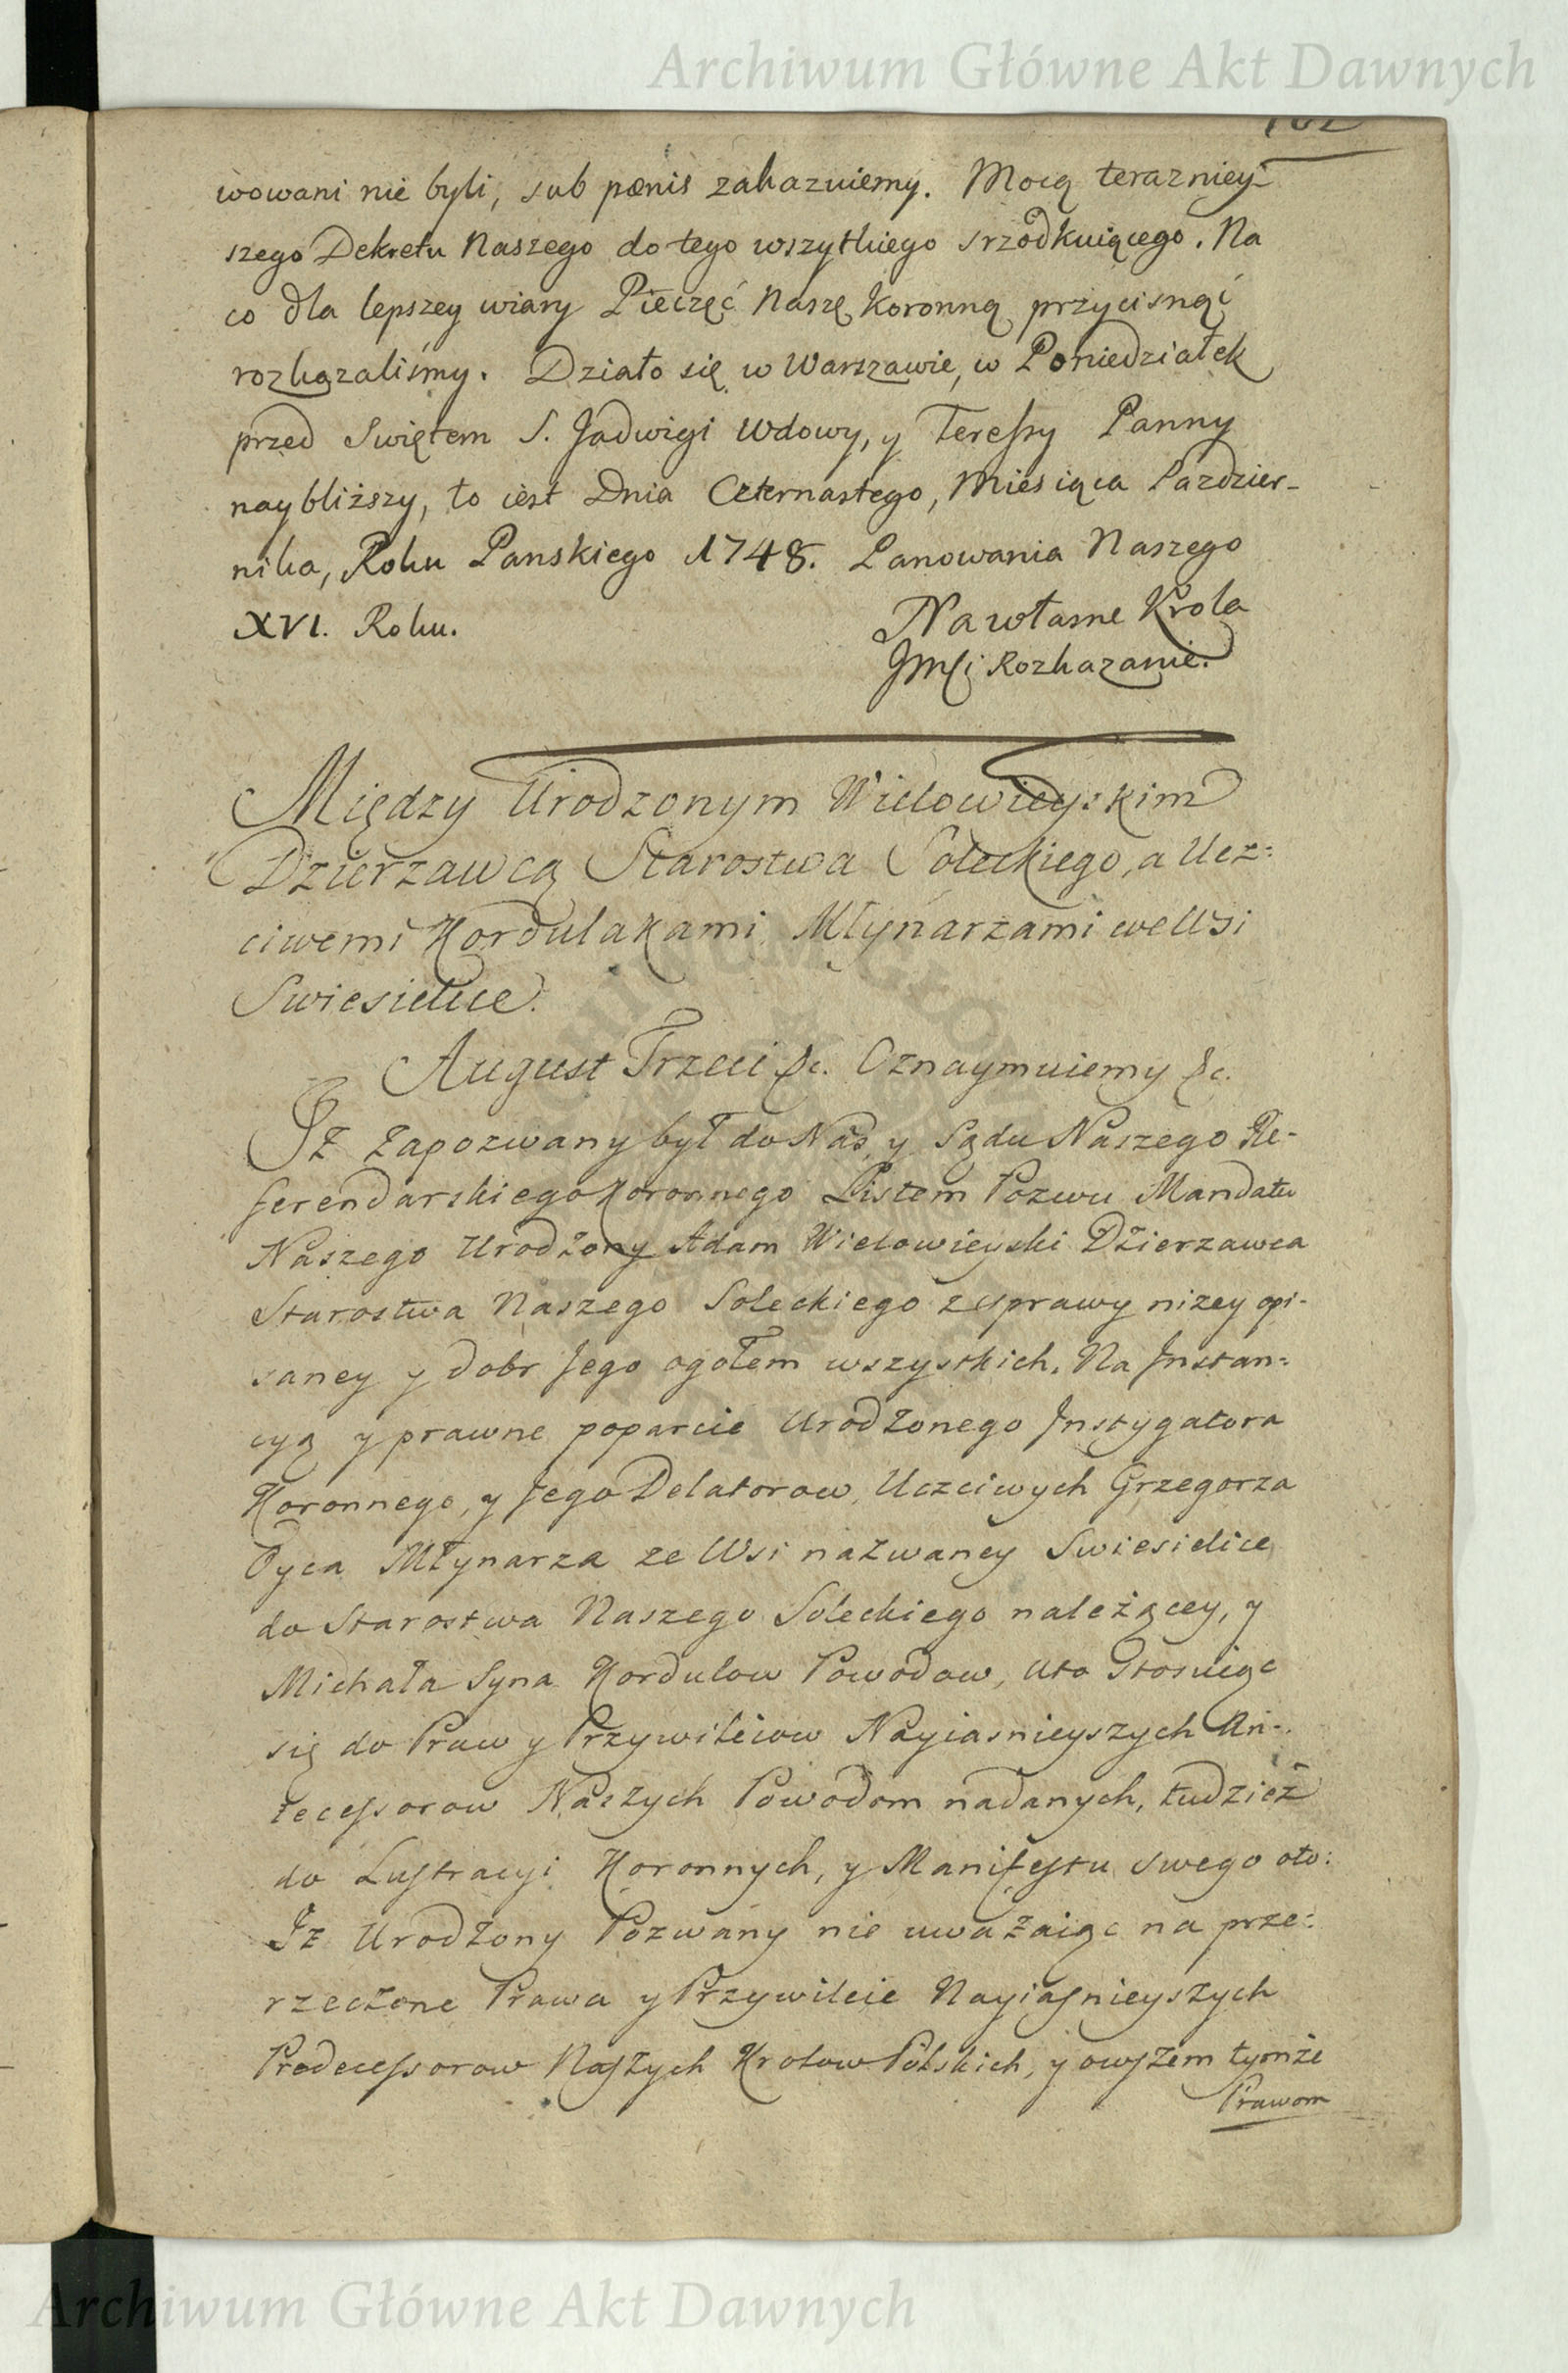 Archiwum Główne Akt Dawnych
wowani nie byli, sub pœnis zakazuiemy. Mocą terazniey-
szego Dekretu Naszego do tego wszytkiego srzodkuiącego. Na
co dla lepszey wiary Pieczęć Naszę Koronną przycisnąć
rozkazaliśmy. Działo się w Warszawie, w Poniedziałek
przed Swiętem S. Jadwigi Wdowy, y Teressy Panny
naybliższy, to iest Dnia Czternastego, Miesiąca Pazdzier-
nika, Roku Panskiego 1748. Panowania Naszego
XVI. Roku.
Na własne Krola
JMſci Rozkazanie.
Między Urodzonym Wielowieyskim
Dzierzawcą Starostwa Soleckiego, a Ucz:
ciwemi Kordulakami Młynarzami we Wsi
Swiesielice.
August Trzeci &c. Oznaymuiemy &c.
Iż Zapozwany był do Nas, y Sądu Naszego Re-
ferendarskiego Koronnego Listem Pozwu Mandatu
Naszego Urodzony Adam Wielowieyski Dzierzawca
Starostwa Naszego Soleckiego z sprawy nizey opi-
saney y dobr Jego ogołem wszystkich. Na Jnstan:
cyą y prawne poparcie Urodzonego Jnstygatora
Koronnego, y Jego Delatorow, Uczciwych Grzegorza
Oyca Młynarza ze Wsi nazwaney Swiesielice
do Starostwa Naszego Soleckiego należącey, y
Michała Syna Kordulow Powodow, Kto Stosuiąc
się do Praw y Przywileiow Nayiasnieyszych An-
tecessorow Naszych Powodom nadanych, tudzież
do Lustracyi Koronnych, y Manifestu swego oto:
Jż Urodzony Pozwany nie uważaiąc na prze:
rzeczone Prawa y Przywileie Nayiasnieyszych
Predecessorow Naszych Krolow Polskich, y owszem tymże
Prawom
Archiwum Główne Akt Dawnych